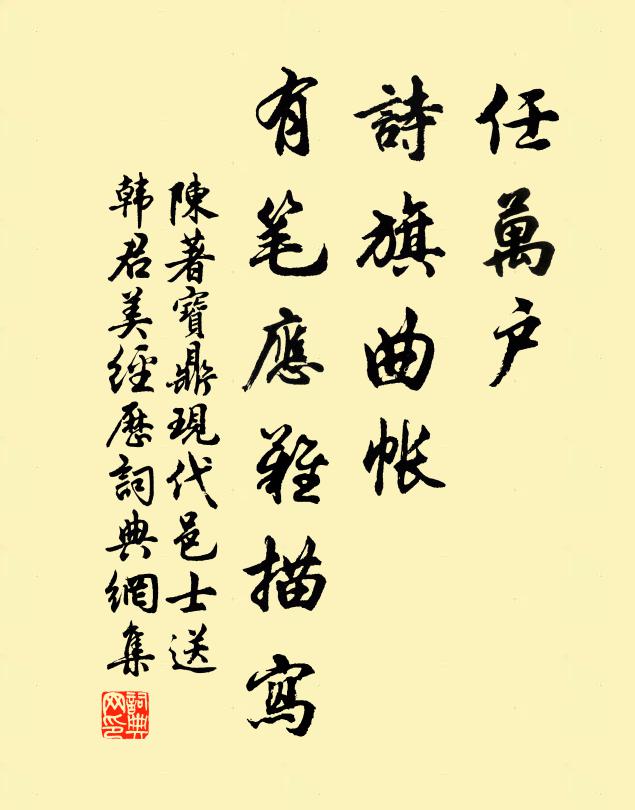 任萬户
詩旗曲帐
有笔應難描寫
陳著寶鼎現代邑士送
韩君美經歷詞典網集
詞典网印